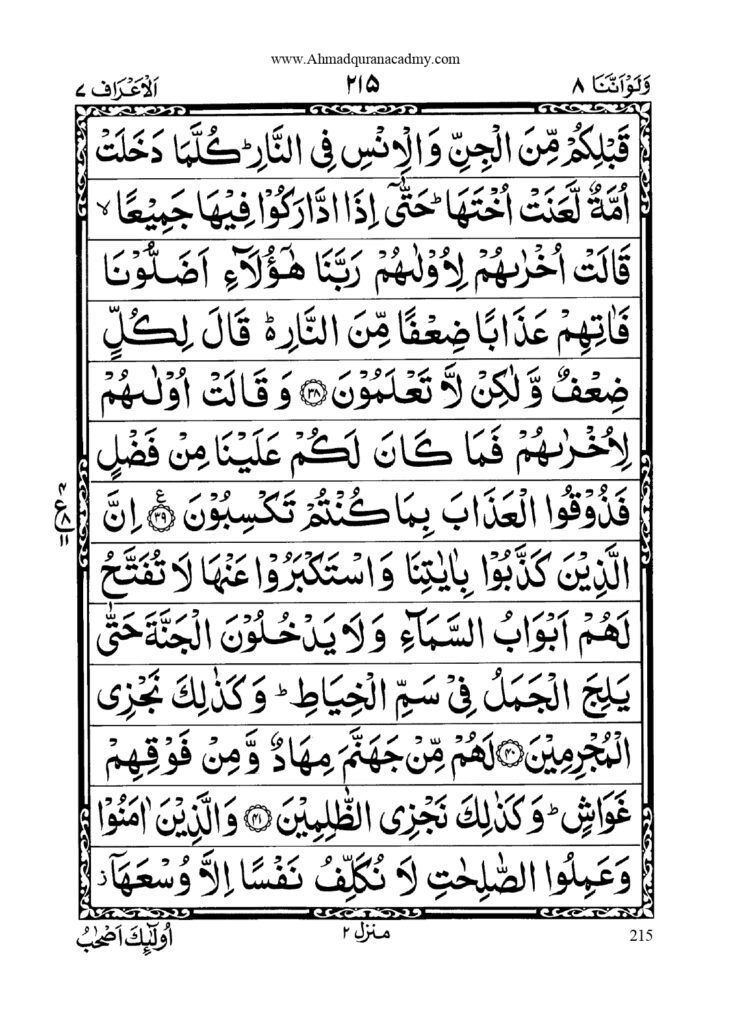 www.Ahmadquranacadmy.com
وَلَوْاَنَّنَا ۸ ۲۱۵ اَلْاَعْرَاف ۷
قَبْلِكُمْ مِّنَ الْجِنِّ وَالْاِنْسِ فِی النَّارِ ؕ كُلَّمَا دَخَلَتْ
اُمَّةٌ لَّعَنَتْ اُخْتَهَا ؕ حَتّٰۤی اِذَا ادَّارَكُوْا فِیْهَا جَمِیْعًا ۙ
قَالَتْ اُخْرٰىهُمْ لِاُوْلٰىهُمْ رَبَّنَا هٰۤؤُلَآءِ اَضَلُّوْنَا
فَاٰتِهِمْ عَذَابًا ضِعْفًا مِّنَ النَّارِ ؕ۬ قَالَ لِكُلٍّ
ضِعْفٌ وَّلٰكِنْ لَّا تَعْلَمُوْنَ ۝۳۸ وَقَالَتْ اُوْلٰىهُمْ
لِاُخْرٰىهُمْ فَمَا كَانَ لَكُمْ عَلَیْنَا مِنْ فَضْلٍ
فَذُوْقُوا الْعَذَابَ بِمَا كُنْتُمْ تَكْسِبُوْنَ ۝۳۹ ع اِنَّ
۴ ع ۸ ۱۱
الَّذِیْنَ كَذَّبُوْا بِاٰیٰتِنَا وَاسْتَكْبَرُوْا عَنْهَا لَا تُفَتَّحُ
لَهُمْ اَبْوَابُ السَّمَآءِ وَلَا یَدْخُلُوْنَ الْجَنَّةَ حَتّٰی
یَلِجَ الْجَمَلُ فِیْ سَمِّ الْخِیَاطِ ؕ وَكَذٰلِكَ نَجْزِی
الْمُجْرِمِیْنَ ۝۴۰ لَهُمْ مِّنْ جَهَنَّمَ مِهَادٌ وَّمِنْ فَوْقِهِمْ
غَوَاشٍ ؕ وَكَذٰلِكَ نَجْزِی الظّٰلِمِیْنَ ۝۴۱ وَالَّذِیْنَ اٰمَنُوْا
وَعَمِلُوا الصّٰلِحٰتِ لَا نُكَلِّفُ نَفْسًا اِلَّا وُسْعَهَاۤ ؗ
اُولٰٓئِكَ اَصْحٰبُ منزل ۲ 215